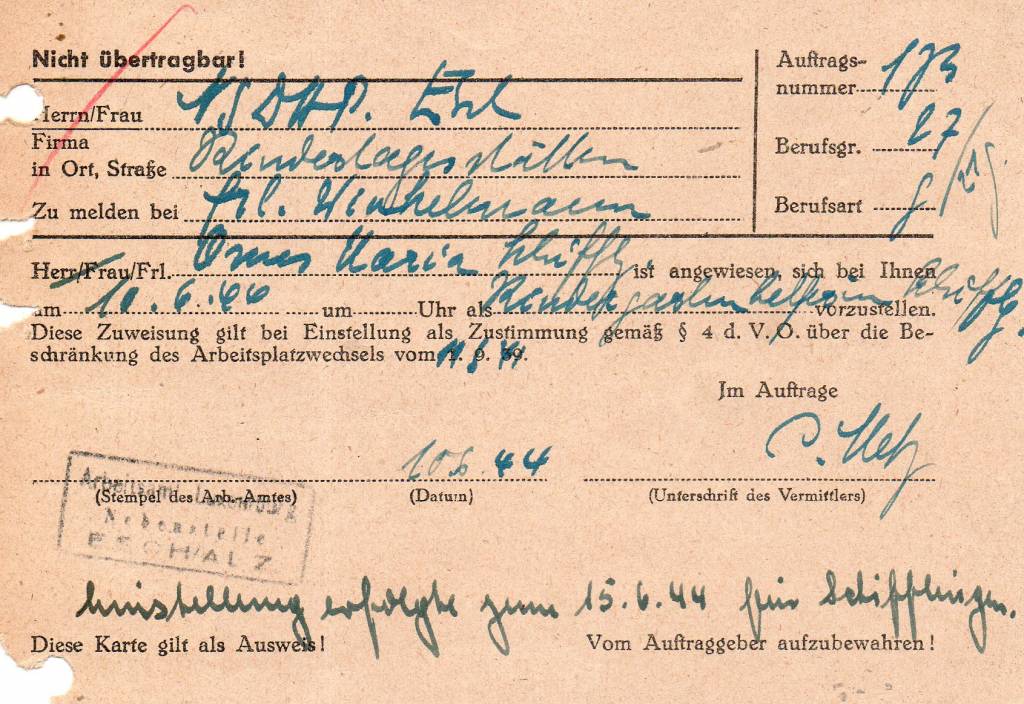 Nicht übertragbar!
Auftrags-
nummer 173
Herrn/Frau NSDAP. Esch
Berufsgr. 27
Firma
in Ort, Straße Kindertagesstätten
Zu melden bei Frl. Winkelmann
Berufsart
Herr/Frau/Frl. Maria ist angewiesen, sich bei Ihnen
am 10.6.44 um Uhr als Kindergartenhelferin vorzustellen.
Diese Zuweisung gilt bei Einstellung als Zustimmung gemäß § 4 d. V. O. über die Be-
schränkung des Arbeitsplatzwechsels vom 1. 9. 39.
Im Auftrage
10.6.44
(Stempel des Arb.-Amtes) (Datum) (Unterschrift des Vermittlers)
Arbeitsamt Luxemburg
Nebenstelle
ESCH/ALZ
Einstellung erfolgte zum 15.6.44 für Schifflingen.
Diese Karte gilt als Ausweis! Vom Auftraggeber aufzubewahren!